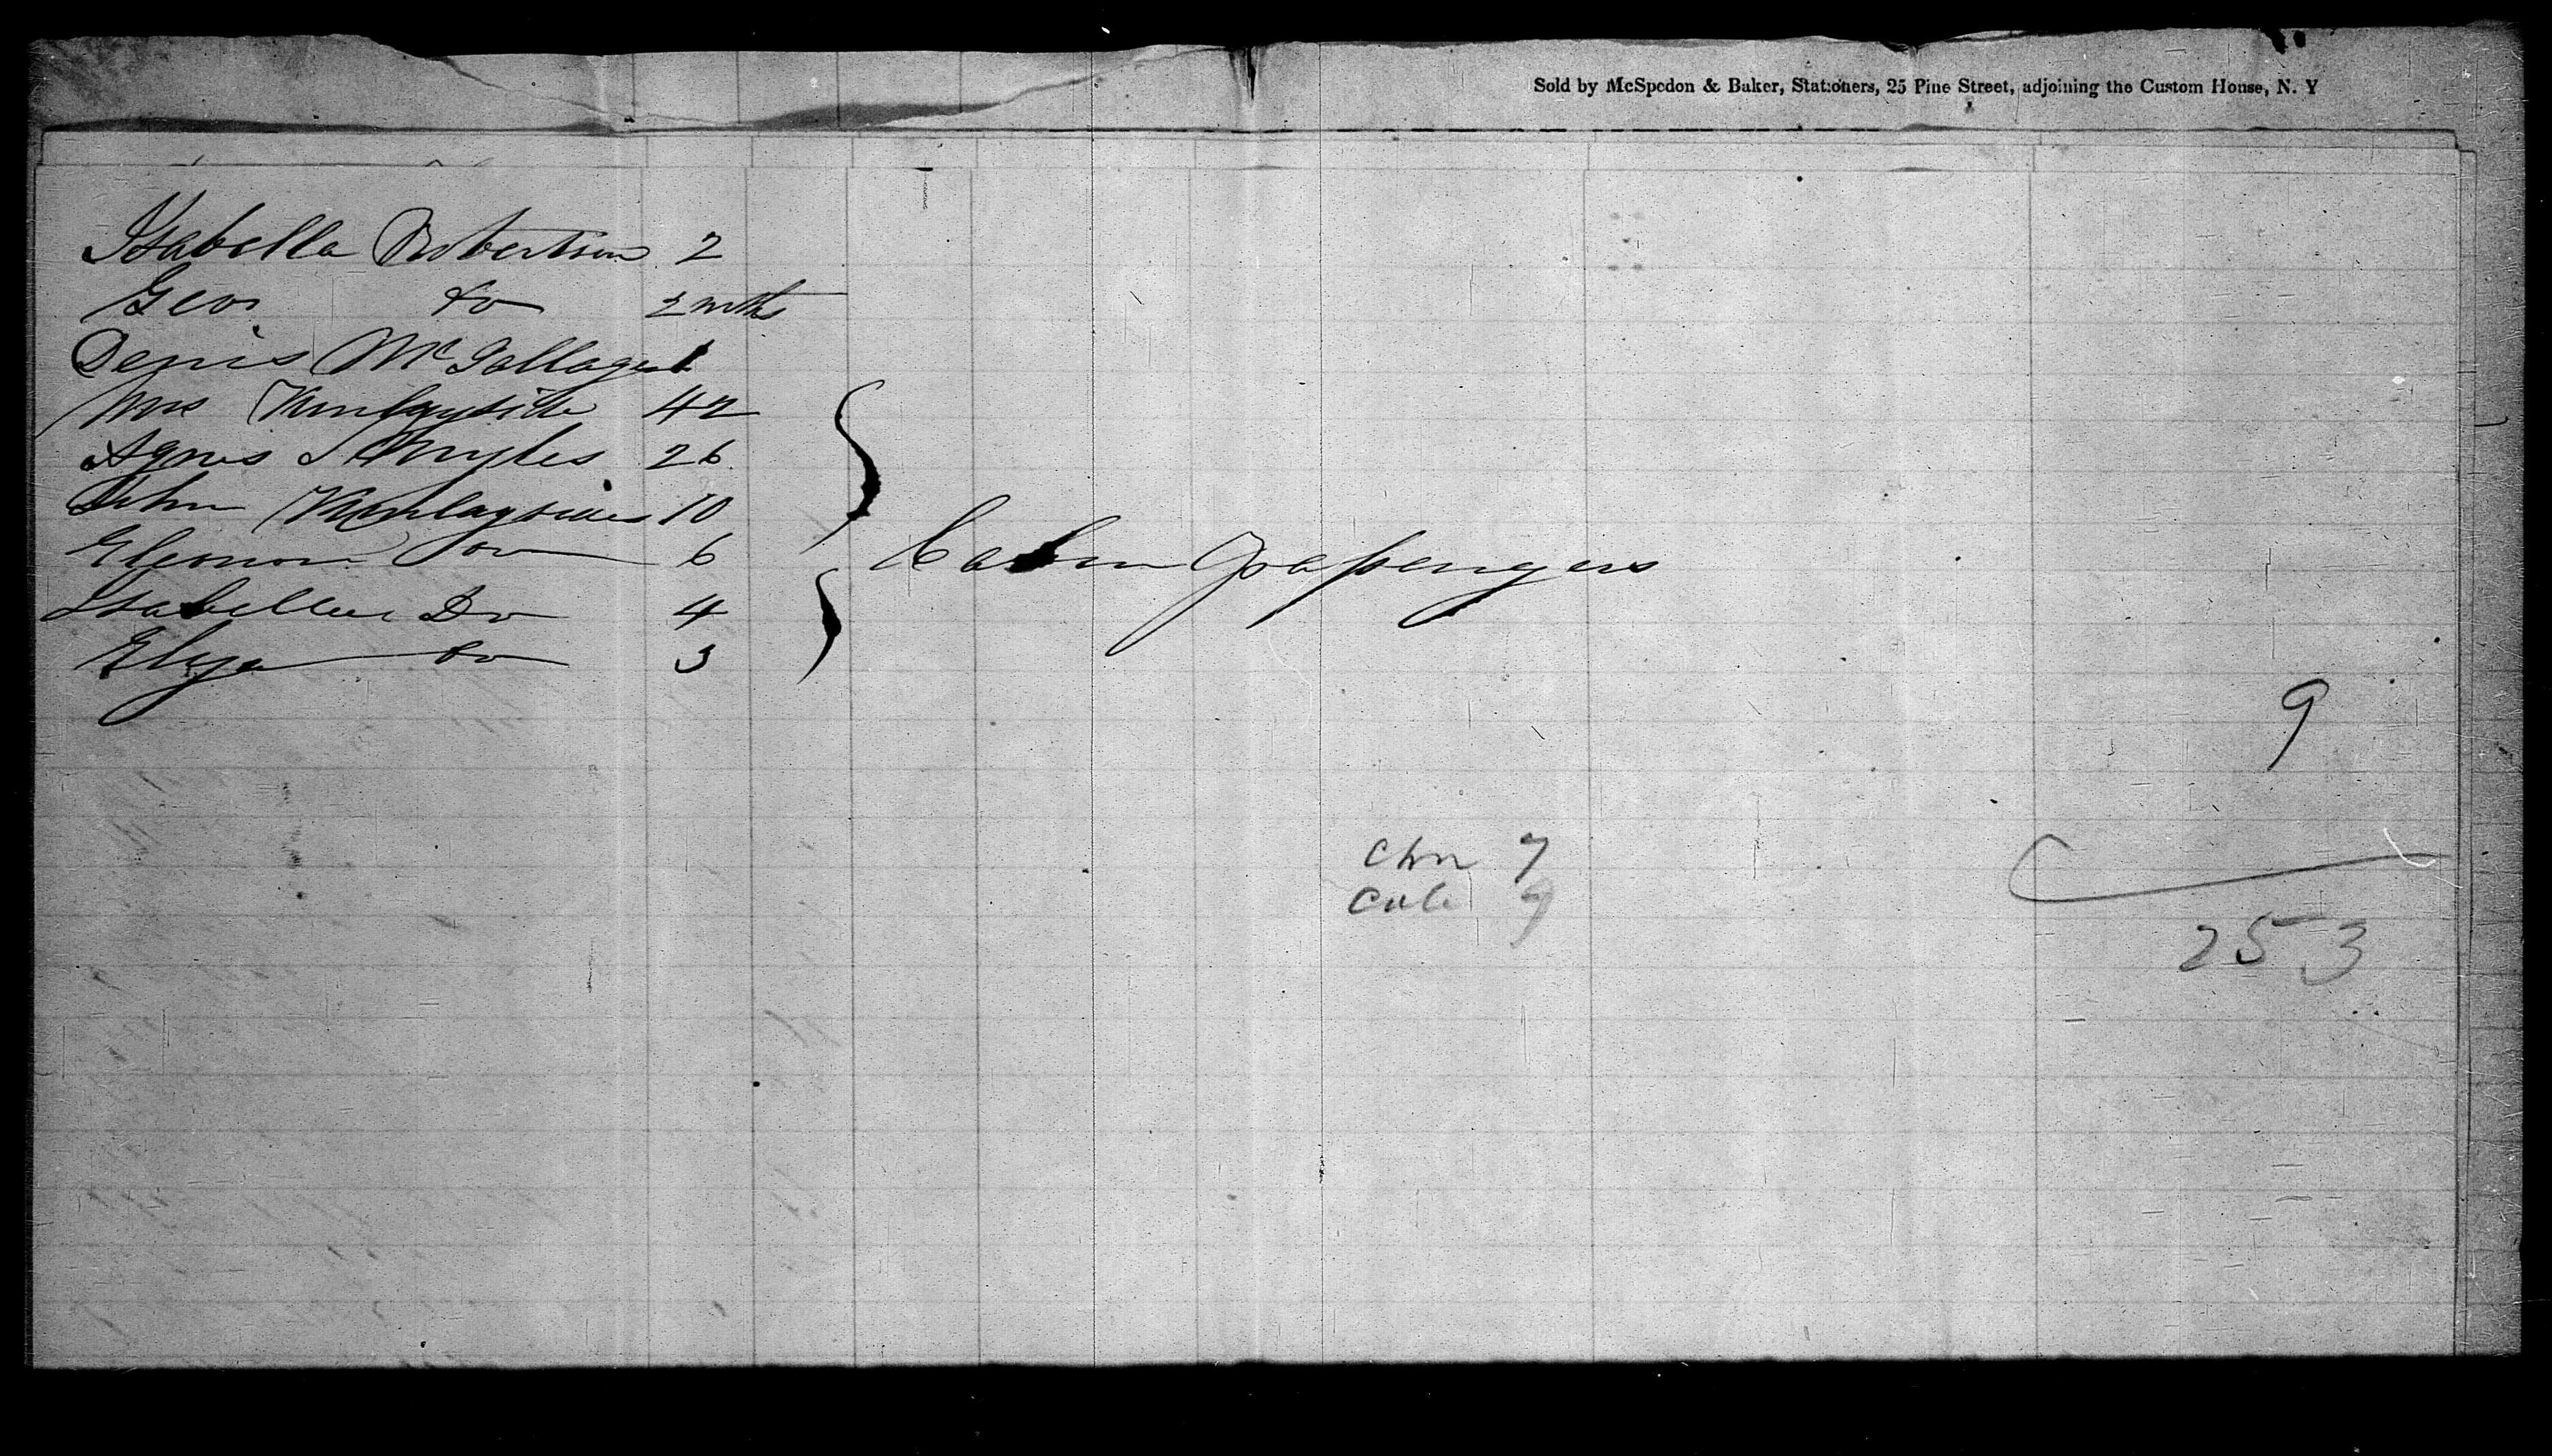 Sold by McSpedon & Baker, Stationers, 25 Pine Street, adjoining the Custom House, N. Y
Isabella Robertson 2
Geo. do 2 mths
Denis McGallager 1
Mrs 42
Agnes 26
John 10
Eleonor do 6
Isabella Do 4
Eliza do 3
Cabin Passengers
9
7
253